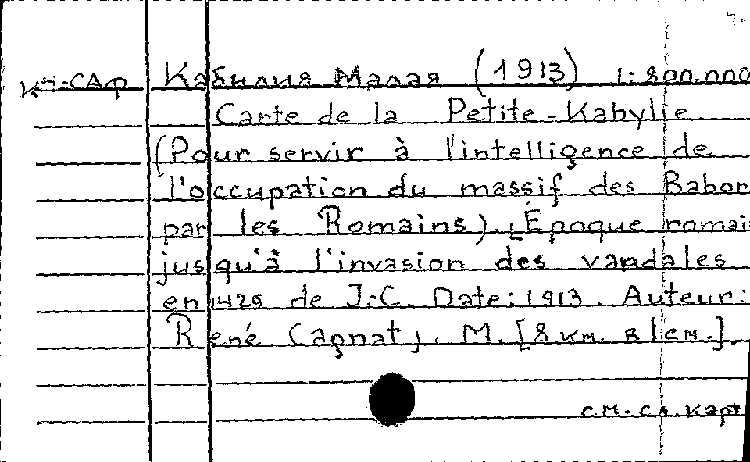 Кабилия Малая (1913) 1:800.000
Carte de la Petite-Kabylie.
(Pour servir à l'intelligence de
l'occupation du massif des Babor
par les Romains). Époque romai
jusqu'à l'invasion des vandales
en 429 de J.-C. Date: 1913. Auteur:
René Cagnat, M. [8 км. в 1 см.].
см. сл. карт